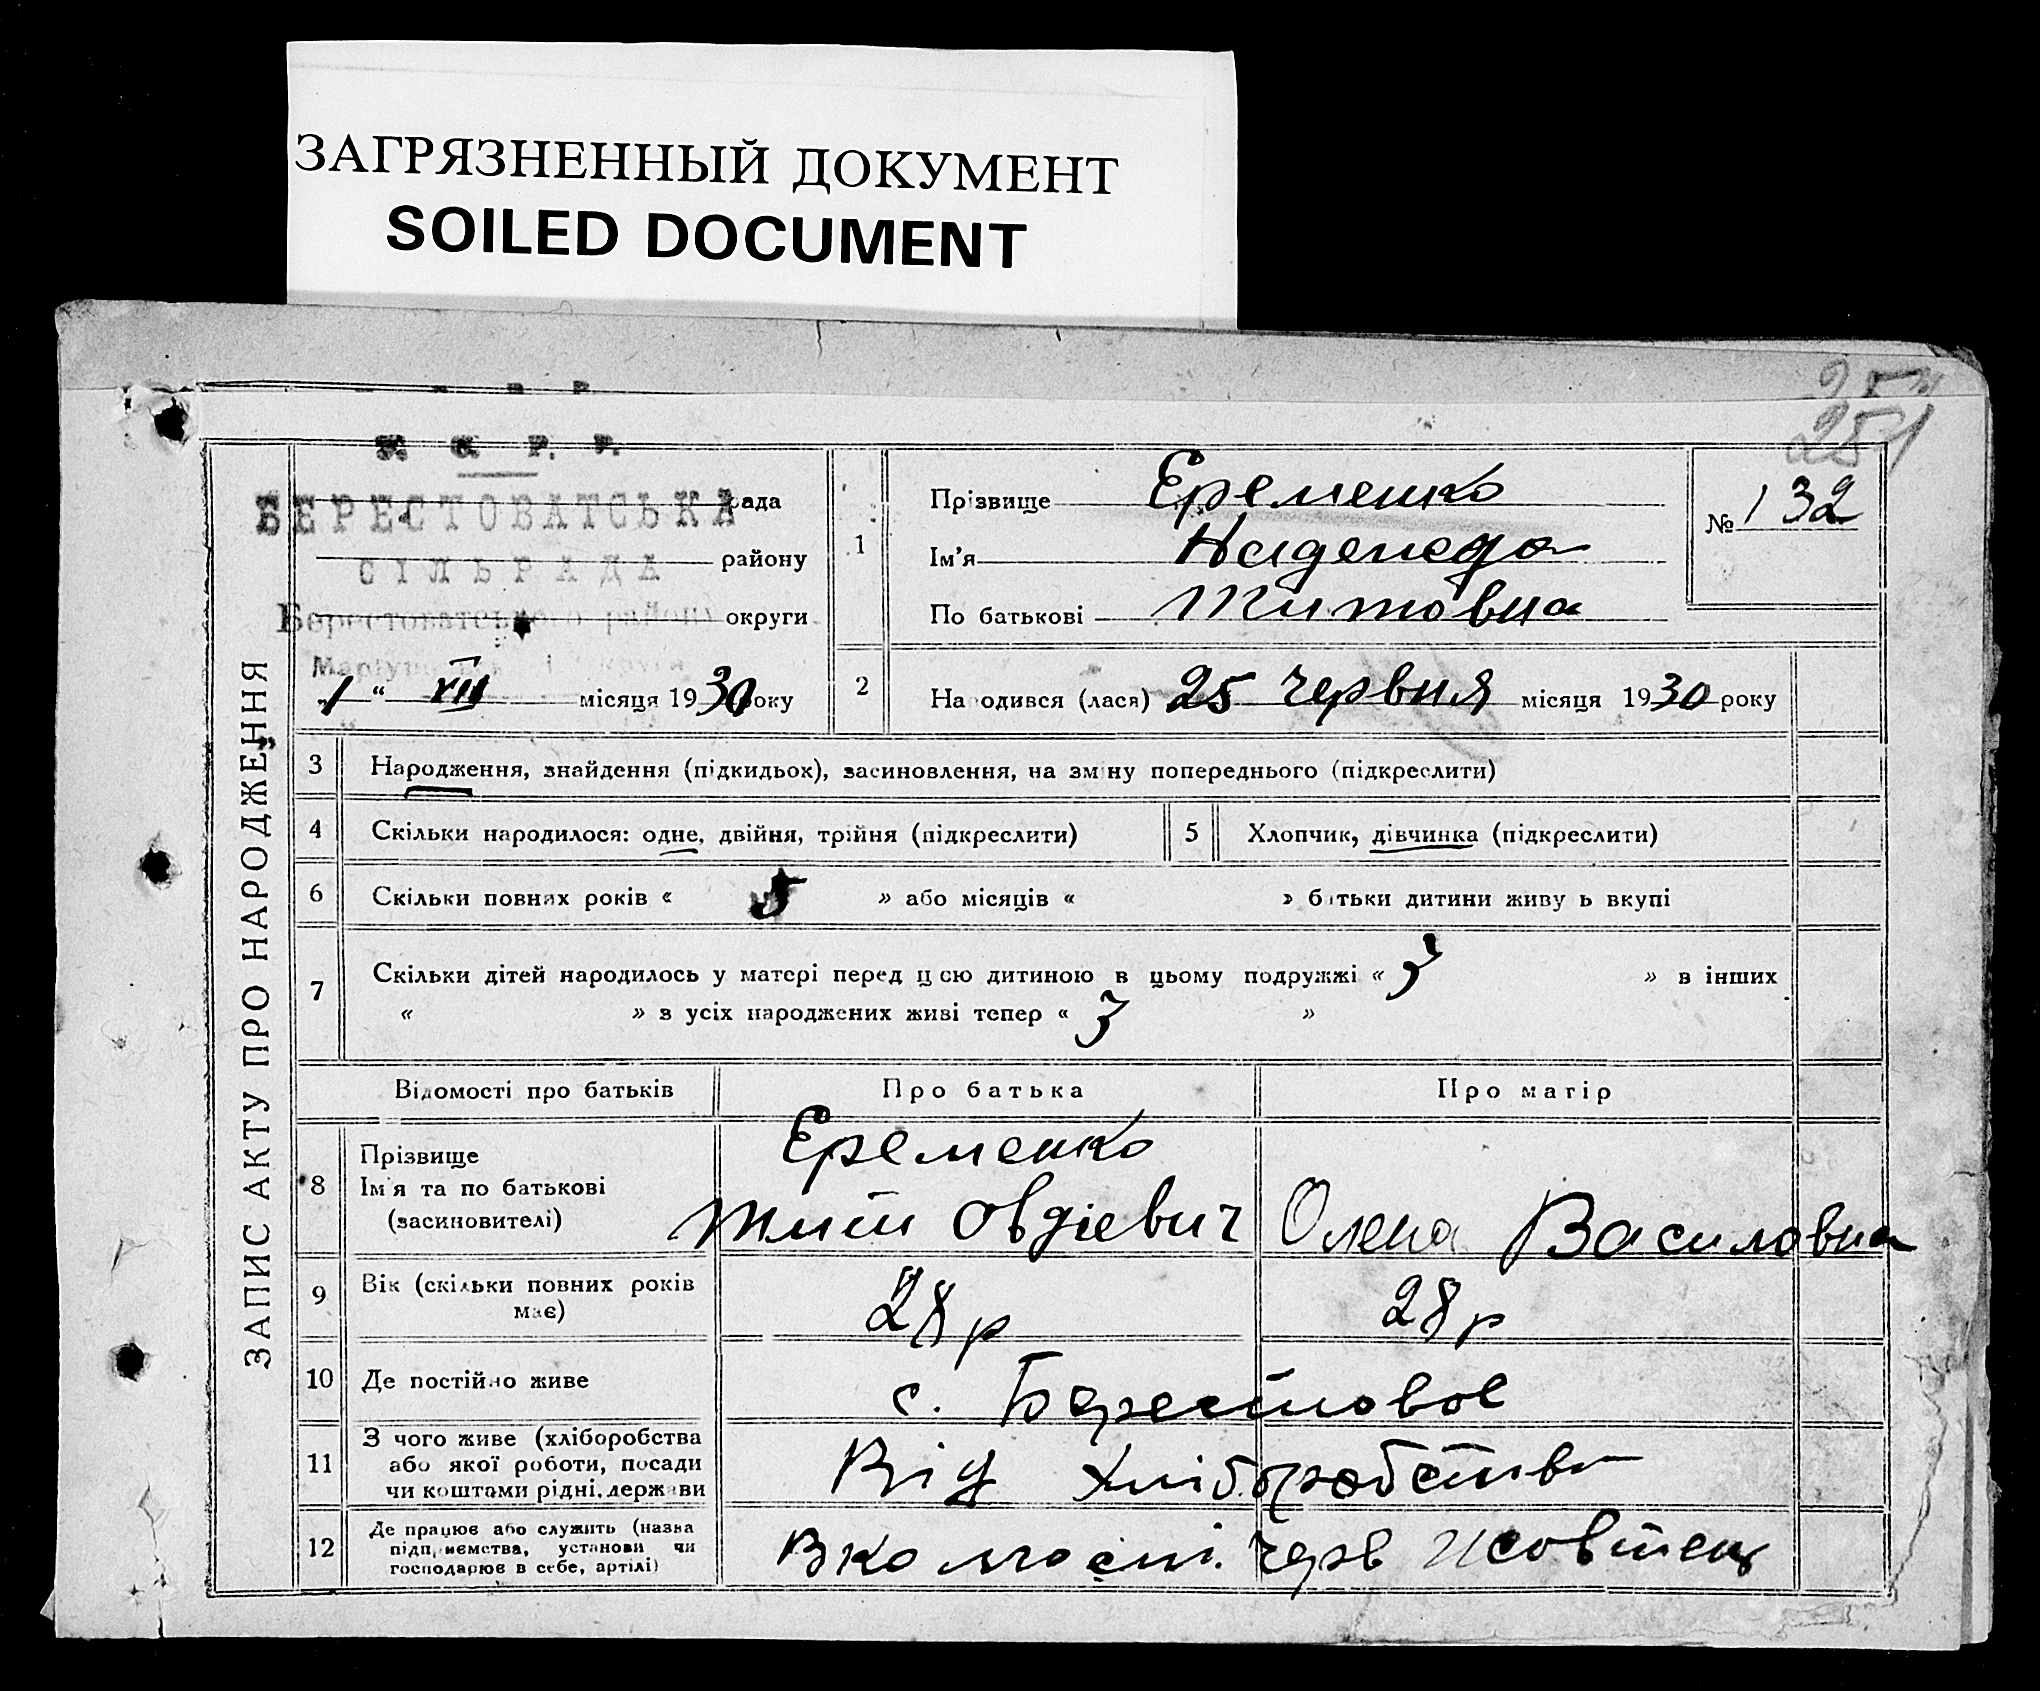 ЗАГРЯЗНЕННЫЙ ДОКУМЕНТ
SOILED DOCUMENT
251
У. С. Р. Р.
БЕРЕСТОВАТСЬКА рада
СІЛЬРАДА району
Берестоватського району округи
„1“ VII місяця 1930 року
ЗАПИС АКТУ ПРО НАРОДЖЕННЯ
1 Прізвище Еременко
Ім'я Надежда
По батькові Титовна
№ 132
2 Народився (лася) 25 червня місяця 1930 року
3 Народження, знайдення (підкидьох), засиновлення, на зміну попереднього (підкреслити)
4 Скільки народилося: одне, двійня, трійня (підкреслити) 5 Хлопчик, дівчинка (підкреслити)
6 Скільки повних років « 5 » або місяців « » батьки дитини живуть вкупі
7 Скільки дітей народилось у матері перед цею дитиною в цьому подружжі « 3 » в інших
« » з усіх народжених живі тепер « 3 »
Відомості про батьків Про батька Про матір
8 Прізвище Еременко
Ім'я та по батькові
(засиновителі) Тит Овдіевич Олена Василовна
9 Вік (скільки повних років має) 28 р 28 р
10 Де постійно живе с. Берестовое
11 З чого живе (хліборобства
або якої роботи, посади
чи коштами рідні, держави Від хліборобства
12 Де працює або служить (назва
підприємства, установи чи
господарює в себе, артілі) В комасті. Черв Жовтень